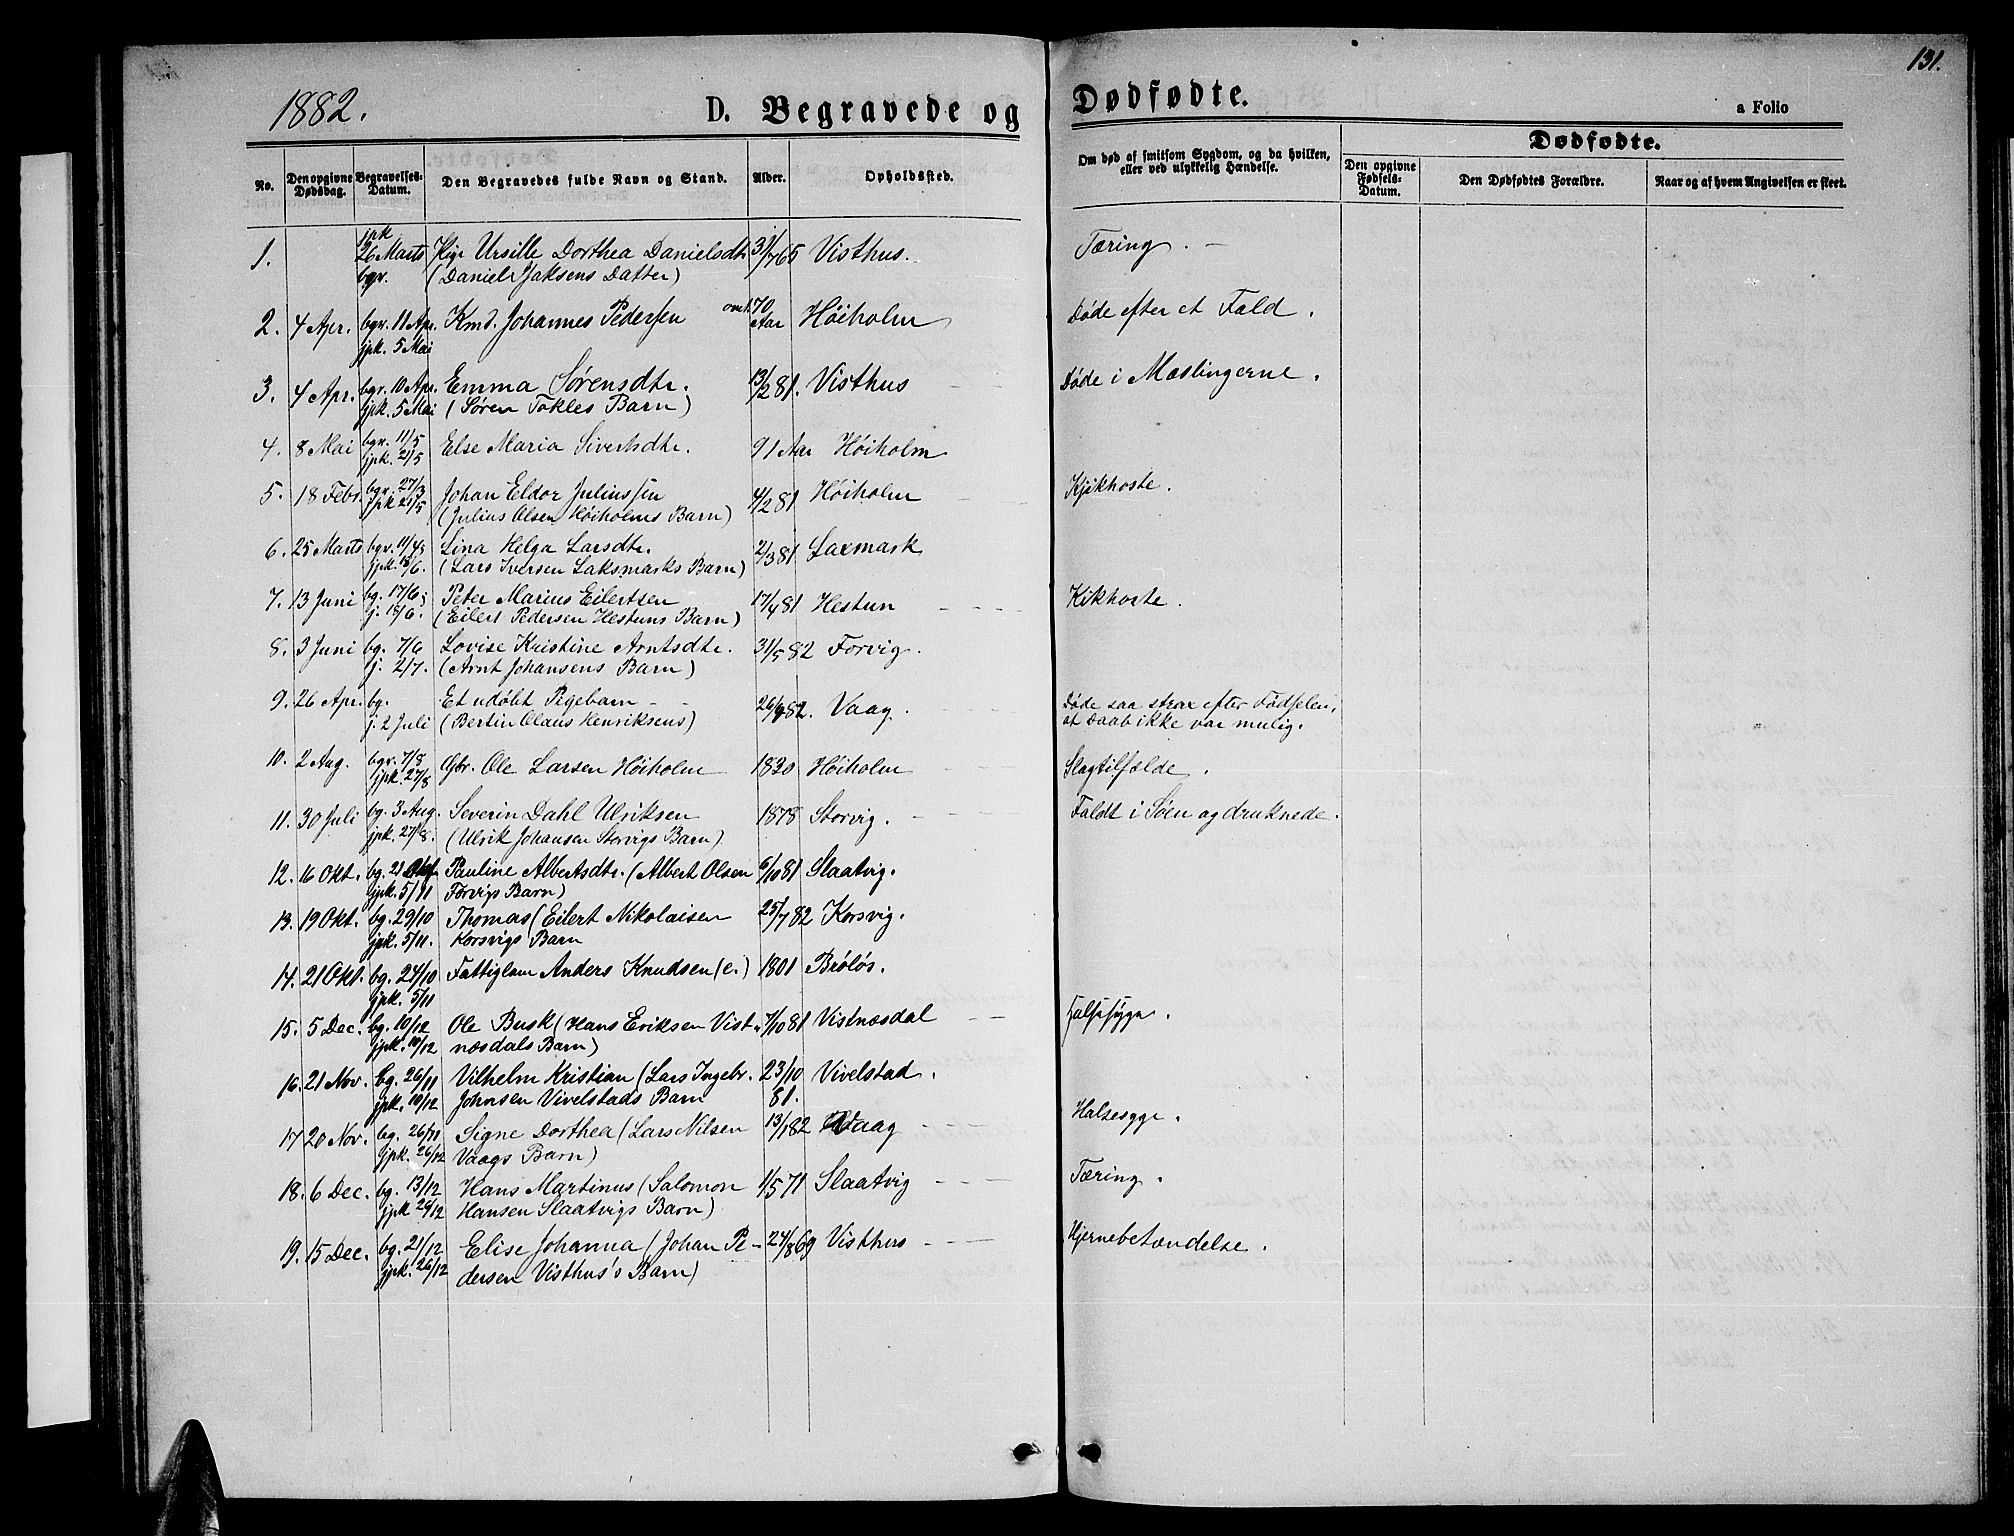 131.
1882.
D. Begravede og Dødfødte.
a Folio
No.
Den opgivne Dødsdag.
Begravelses-Datum.
Den Begravedes fulde Navn og Stand.
Alder.
Opholdssted.
Om død af smitsom Sygdom, og da hvilken,
eller ved ulykkelig Hændelse.
Dødfødte.
Den opgivne Fødsels-Datum.
Den Dødfødtes Forældre.
Naar og af hvem Angivelsen er skeet.
jpk
1. 26 Marts Pige Ursille Dorthea Danielsdtr 31/7 65 Visthus. Tæring. —
bgr. (Daniel Jaksens Datter)
2. 4 Apr. bgr. 11 Apr. Kmd. Johannes Pedersen omt. 70 Aar Höiholm Døde efter et Fald.
jpk. 5 Mai
3. 4 Apr. bgr. 10 Apr. Emma Sørensdtr. 13/2 81. Visthus Døde i Mæslingerne.
jpk. 5 Mai (Søren Tokles Barn)
4. 8 Mai bgr. 11/5 Else Maria Sivertsdtr. 91 Aar Höiholm
jpk. 21/5
5. 18 Febr. bgr. 27/3 Johan Eldor Juliussen 4/2 81 Höiholm Kjikhoste.
jpk 21/5 (Julius Olsen Höiholms Barn)
6. 25 Marts bgr. 11/4 Lina Helga Larsdtr. 2/3 81 Laxmark
jpk. 18/6. (Lars Iversen Laksmarks Barn)
7. 13 Juni bg. 17/6; Peter Marius Eilertsen 17/4 81 Hestun Kikhoste.
j. 18/6. (Eilert Pedersen Hestuns Barn)
8. 3 Juni bg. 7/6 Lovise Kristine Arntsdtr. 31/5 82 Forvig.
j. 2/7. (Arnt Johansens Barn)
9. 26 Apr. bg. Et udøbt Pigebarn — 26/4 82. Vaag. Døde saa strax efter Fødselen,
j. 2 Juli (Bertin Olaus Henriksens) at Daab ikke var mulig.
10. 2 Aug. bgr. 7/8 Gbr. Ole Larsen Höiholm 1830 Höiholm Slagtilfælde.
jpk. 27/8
11. 30 Juli bg. 3 Aug. Severin Dahl Ulriksen 1878 Storvig. Faldt i Søen og druknede.
jpk. 27/8. (Ulrik Johansen Storvigs Barn)
12. 16 Okt. bg. 21 Okt Pauline Albertsdtr. (Albert Olsen 6/10 81 Slaatvig.
jpk. 5/11 Forvigs Barn)
13. 19 Okt. bg. 29/10 Thomas (Eilert Nikolaisen 25/7 82 Korsvig.
jpk. 5/11. Korsvigs Barn
14. 21 Okt. bg. 24/10 Fattiglem Anders Knudsen (e.) 1801 Bröløs.
jpk. 5/11
15. 5 Dec. bg. 10/12 Ole Busk (Hans Eriksen Vist- 7/10 81 Vistnæsdal Halssyge.
jpk. 10/12 næsdals Barn)
16. 21 Nov. bg. 26/11 Vilhelm Kristian (Lars Ingebr. 23/10 Vivelstad.
jpk. 10/12 Johnsen Vivelstads Barn 81.
17 20 Nov. bg. 26/11 Signe Dorthea (Lars Nilsen 13/1 82 Vaag Halsesyge.
jpk. 26/12 Vaags Barn)
18. 6 Dec. bg. 13/12 Hans Martinus (Salomon 1/5 71 Slaatvig Tæring.
jpk 26/12 Hansen Slaatvigs Barn)
19. 15 Dec. bg. 21/12 Elise Johanna (Johan Pe- 24/8 69 Visthus Hjernebetændelse.
jpk. 26/12 dersen Visthus's Barn)